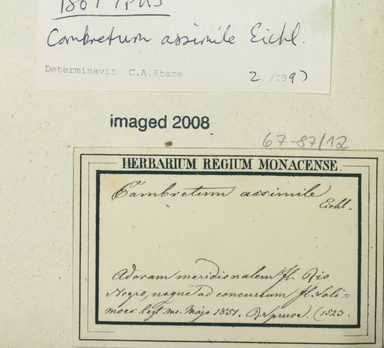 ISOTYPUS
Combretum assimile Eichl.
Determinavit C.A.Stace 2/1997
imaged 2008
67-87/12
HERBARIUM REGIUM MONACENSE.
Combretum assimile
Eichl.
Ad oram meridionalem fl. Rio
Negro, usque ad concursum fl. Soli-
moes leg. ms. Majo 1851. R Spruce. (1523.